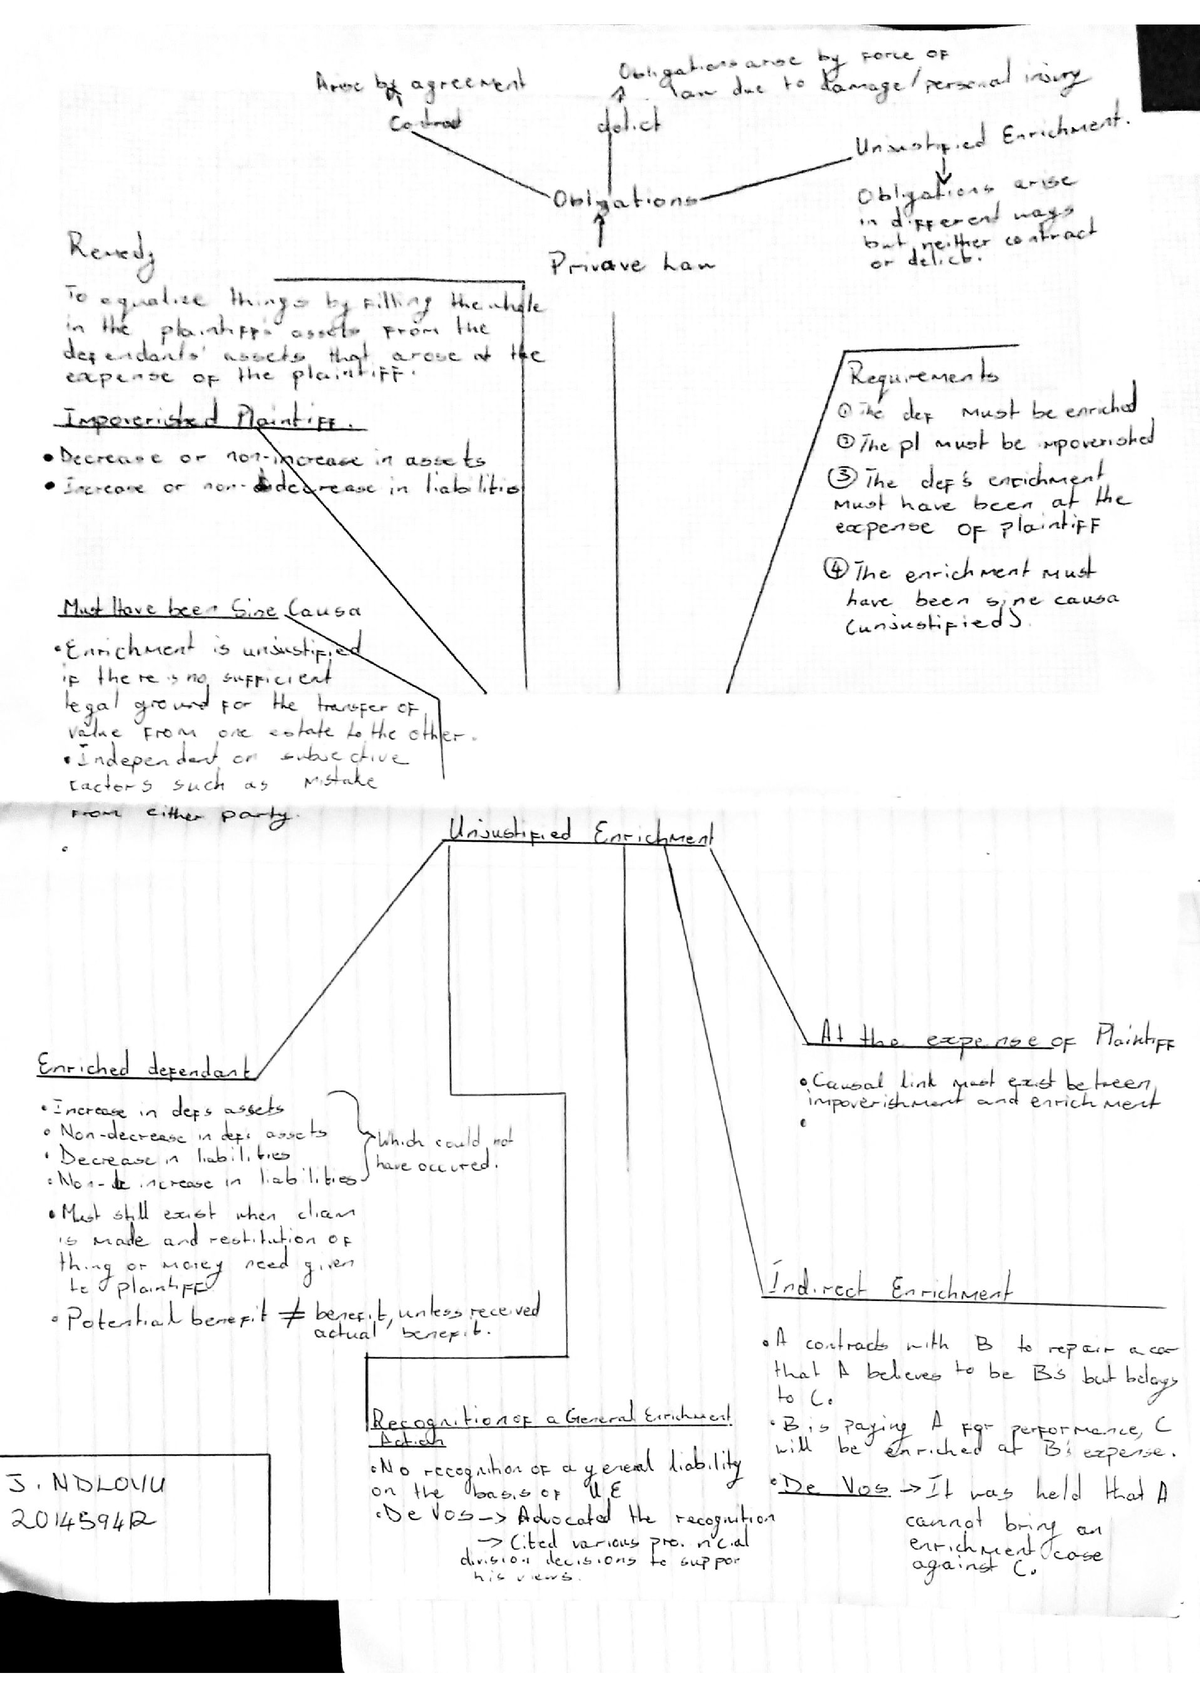 Arise by agreement
Contract
Obligations arise by force of
law due to damage/personal injury
delict
Unjustified Enrichment.
Obligations arise
in different ways
but neither contract
or delict.
Obligations
Private Law
Remedy
To equalise things by filling the whole
in the plaintiff's assets from the
defendants' assets that arose at the
expense of the plaintiff.
Impoverished Plaintiff.
• Decrease or non-increase in assets
• Increase or non-decrease in liabilities
Must Have been Sine Causa
• Enrichment is unjustified
if there is no sufficient
legal ground for the transfer of
value from one estate to the other.
• Independent on subjective
factors such as mistake
from either party.
Requirements
① The def must be enriched
② The pl must be impoverished
③ The def's enrichment
must have been at the
expense of plaintiff
④ The enrichment must
have been sine causa
(unjustified).
Unjustified Enrichment
Enriched defendant
• Increase in defs assets
• Non-decrease in defs assets
• Decrease in liabilities
• Non- increase in liabilities
which could not
have occured.
• Must still exist when claim
is made and restitution of
thing or money need given
to plaintiff
• Potential benefit ≠ benefit, unless received
actual benefit.
At the expense of Plaintiff
• Causal link must exist between
impoverishment and enrichment
•
Indirect Enrichment
• A contracts with B to repair a car
that A believes to be B's but belongs
to C.
• B is paying A for performance, C
will be enriched at B's expense.
• De Vos → It was held that A
cannot bring an
enrichment case
against C.
Recognition of a General Enrichment
Action
• No recognition of a general liability
on the basis of UE
• De Vos → Advocated the recognition
→ Cited various provincial
division decisions to suppor
his views.
J. NDLOVU
201459412